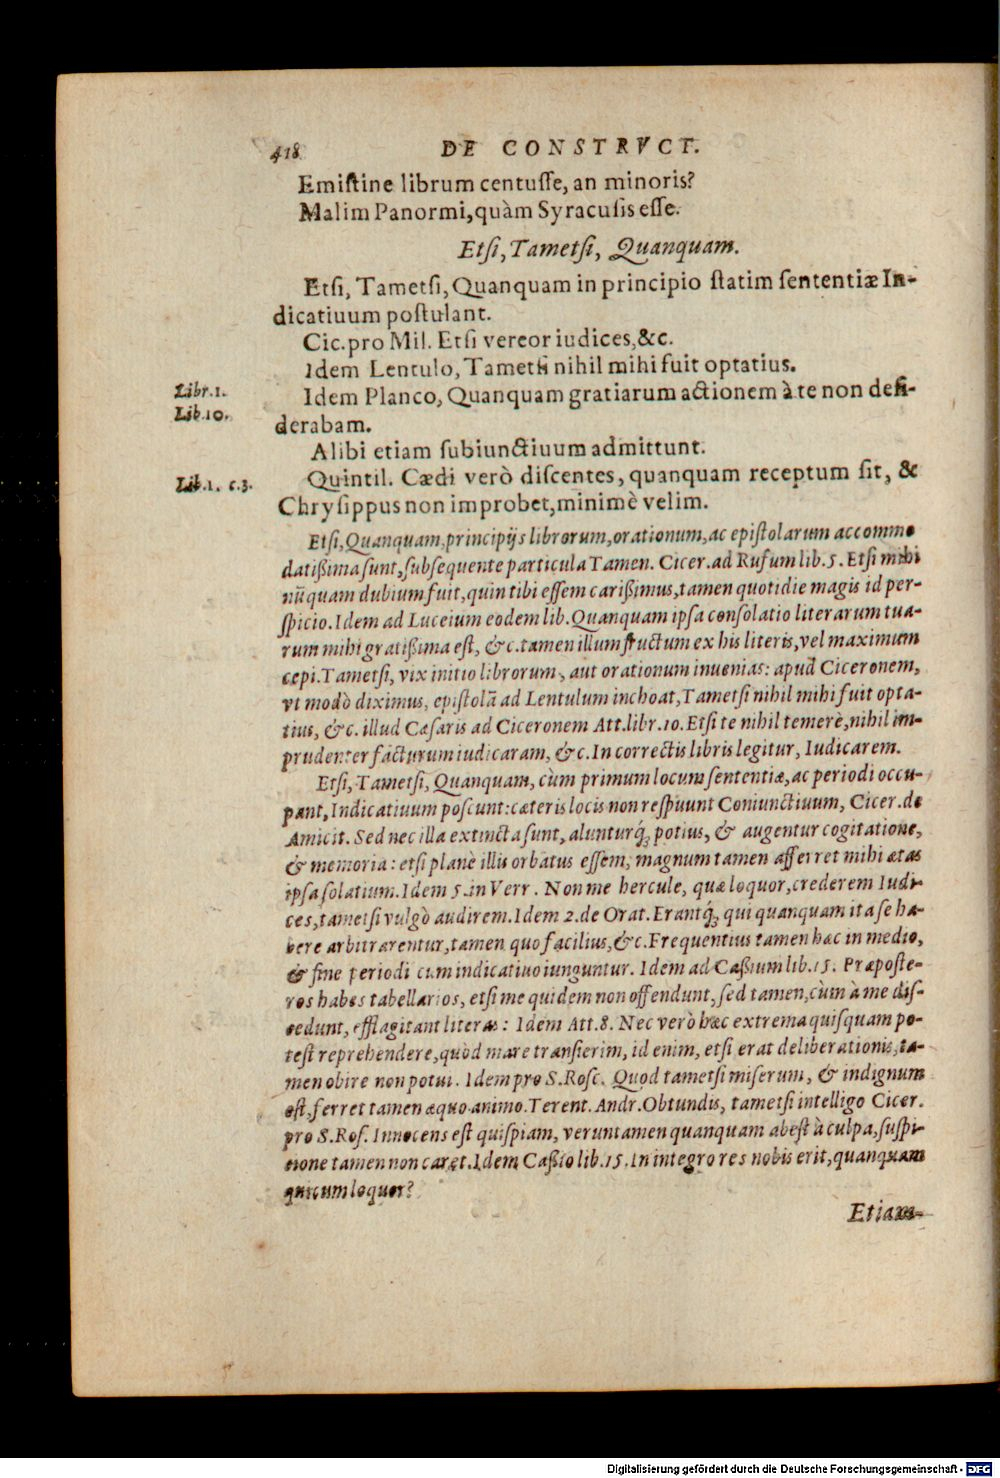 418 DE CONSTRVCT.
Emistine librum centusse, an minoris?
Malim Panormi, quàm Syracusis esse.
Etsi, Tametsi, Quanquam.
Etsi, Tametsi, Quanquam in principio statim sententiæ In-
dicatiuum postulant.
Cic. pro Mil. Etsi vereor iudices, &c.
Idem Lentulo, Tametsi nihil mihi fuit optatius.
Libr.1.
Idem Planco, Quanquam gratiarum actionem à te non desi-
Lib.10.
derabam.
Alibi etiam subiunctiuum admittunt.
Lib.1. c.3.
Quintil. Cædi verò discentes, quanquam receptum sit, &
Chrysippus non improbet, minimè velim.
Etsi, Quanquam, principijs librorum, orationum, ac epistolarum accommo
datißima sunt, subsequente particula Tamen. Cicer. ad Rufum lib.5. Etsi mihi
nũquam dubium fuit, quin tibi essem carißimus, tamen quotidie magis id per-
spicio. Idem ad Luceium eodem lib. Quanquam ipsa consolatio literarum tua-
rum mihi gratißima est, &c. tamen illum fructum ex his literis, vel maximum
cepi. Tametsi, vix initio librorum, aut orationum inuenias: apud Ciceronem,
vt modò diximus, epistolã ad Lentulum inchoat, Tametsi nihil mihi fuit opta-
tius, &c. illud Cæsaris ad Ciceronem Att. libr.10. Etsi te nihil temerè, nihil im-
prudenter facturum iudicaram, &c. In correctis libris legitur, Iudicarem.
Etsi, Tametsi, Quanquam, cùm primum locum sententiæ, ac periodi occu-
pant, Indicatiuum poscunt: cæteris locis non respuunt Coniunctiuum, Cicer. de
Amicit. Sed nec illa extincta sunt, alunturq́; potius, & augentur cogitatione,
& memoria: etsi planè illis orbatus essem, magnum tamen afferret mihi ætas
ipsa solatium. Idem 5. in Verr. Non me hercule, quæ loquor, crederem Iudi-
ces, tametsi vulgò audirem. Idem 2. de Orat. Erantq́; qui quanquam ita se ha-
bere arbitrarentur, tamen quo facilius, &c. Frequentius tamen hæc in medio,
& fine periodi cum indicatiuo iunguntur. Idem ad Caßium lib.15. Præposte-
ros habes tabellarios, etsi me quidem non offendunt, sed tamen, cùm à me dis-
cedunt, efflagitant literas: Idem Att.8. Nec verò hæc extrema quisquam po-
test reprehendere, quòd mare transierim, id enim, etsi erat deliberationis, ta-
men obire non potui. Idem pro S. Rosc. Quod tametsi miserum, & indignum
est, ferret tamen æquo animo. Terent. Andr. Obtundis, tametsi intelligo Cicer.
pro S. Ros. Innocens est quispiam, veruntamen quanquam abest à culpa, suspi-
cione tamen non caret. Idem Caßio lib.15. In integro res nobis erit, quanquam
quicum loquor?
Etiam-
Digitalisierung gefördert durch die Deutsche Forschungsgemeinschaft - DFG